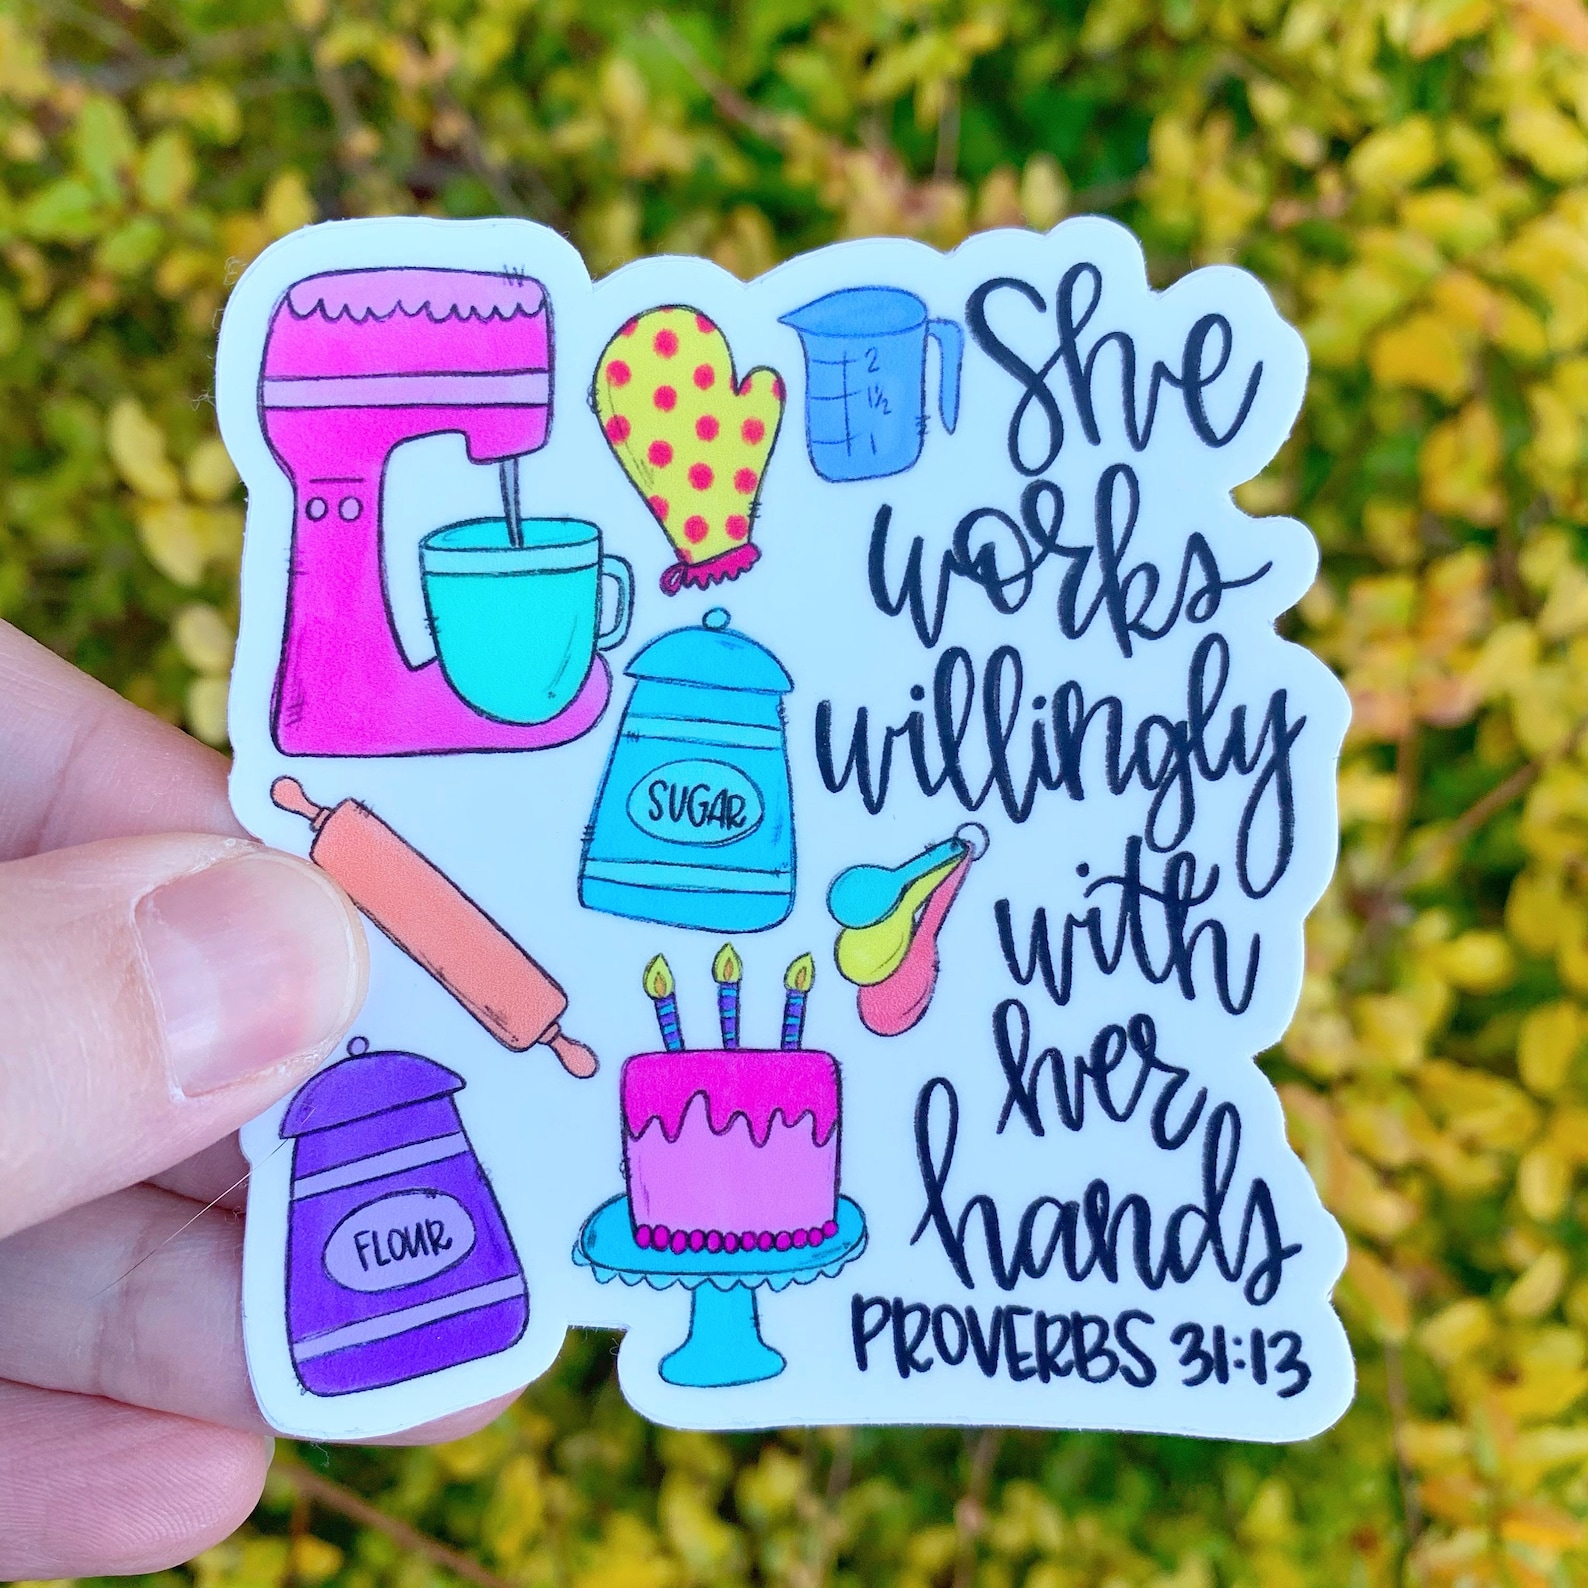 2
1½
1
She
works
willingly
with
her
hands
PROVERBS 31:13
SUGAR
FLOUR